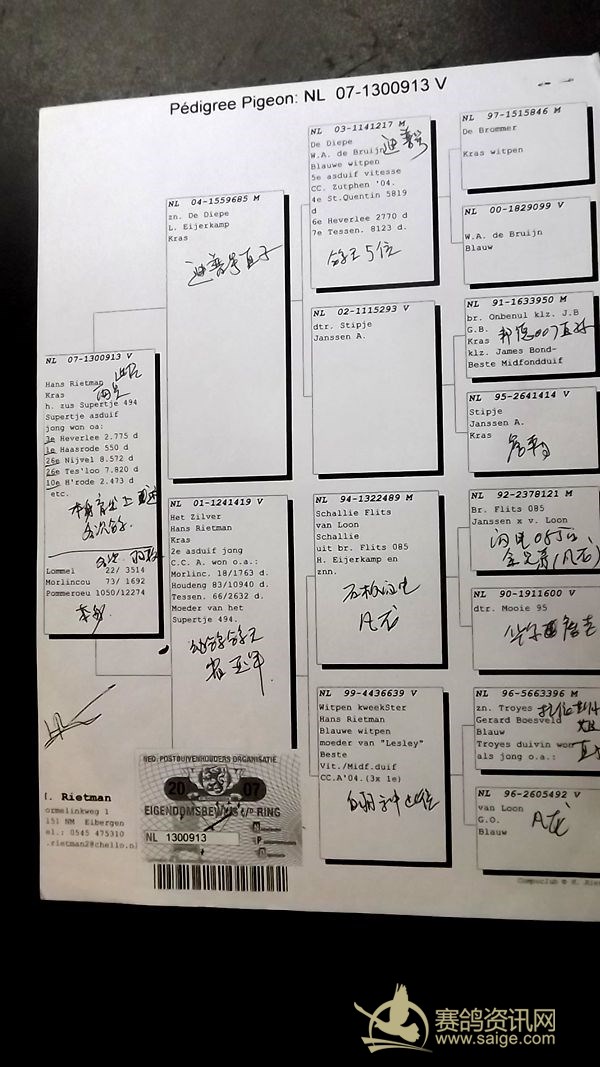 Pédigree Pigeon: NL 07-1300913 V
NL 07-1300913 V
Hans Rietman
Kras
h. zus Supertje 494
Supertje asduif
jong won oa:
3e Heverlee 2.775 d
1e Haasrode 550 d
26e Nijvel 8.572 d
26e Tes'loo 7.820 d
10e H'rode 2.473 d
etc.
Lommel 22/ 3514
Morlincou 73/ 1692
Pommeroeu 1050/12274
NL 04-1559685 M
zn. De Diepe
L. Eijerkamp
Kras
迪普号直子
NL 01-1241419 V
Het Zilver
Hans Rietman
Kras
2e asduif jong
C.C. A. won o.a.:
Morlinc. 18/1763 d.
Houdeng 83/10940 d.
Tessen. 66/2632 d.
Moeder van het
Supertje 494.
NL 03-1141217 M
De Diepe
W.A. de Bruijn
迪普号
Blauwe witpen
5e asduif vitesse
CC. Zutphen '04.
4e St.Quentin 5819
d
6e Heverlee 2770 d
7e Tessen. 8123 d.
鸽王5位
NL 02-1115293 V
dtr. Stipje
Janssen A.
NL 94-1322489 M
Schallie Flits
van Loon
Schallie
uit br. Flits 085
H. Eijerkamp en
znn.
凡龙
NL 99-4436639 V
Witpen kweekSter
Hans Rietman
Blauwe witpen
moeder van "Lesley"
Beste
Vit./Midf.duif
CC.A'04.(3x 1e)
NL 97-1515846 M
De Brommer
Kras witpen
NL 00-1829099 V
W.A. de Bruijn
Blauw
NL 91-1633950 M
br. Onbenul klz. J.B
G.B.
Kras
邦德007直孙
klz. James Bond-
Beste Midfondduif
NL 95-2641414 V
Stipje
Janssen A.
Kras
詹森
NL 92-2378121 M
Br. Flits 085
Janssen x v. Loon
NL 90-1911600 V
dtr. Mooie 95
NL 96-5663396 M
zn. Troyes
Gerard Boesveld
Blauw
Troyes duivin won
als jong o.a.:
NL 96-2605492 V
van Loon
G.O.
Blauw
凡龙
. Rietman
ormelinkweg 1
151 NM Eibergen
el.: 0545 475310
.rietman2@chello.nl
NED. POSTDUIVENHOUDERS ORGANISATIE
20 07
EIGENDOMSBEWIJS t/m RING
NL 1300913
赛鸽资讯网
www.saige.com